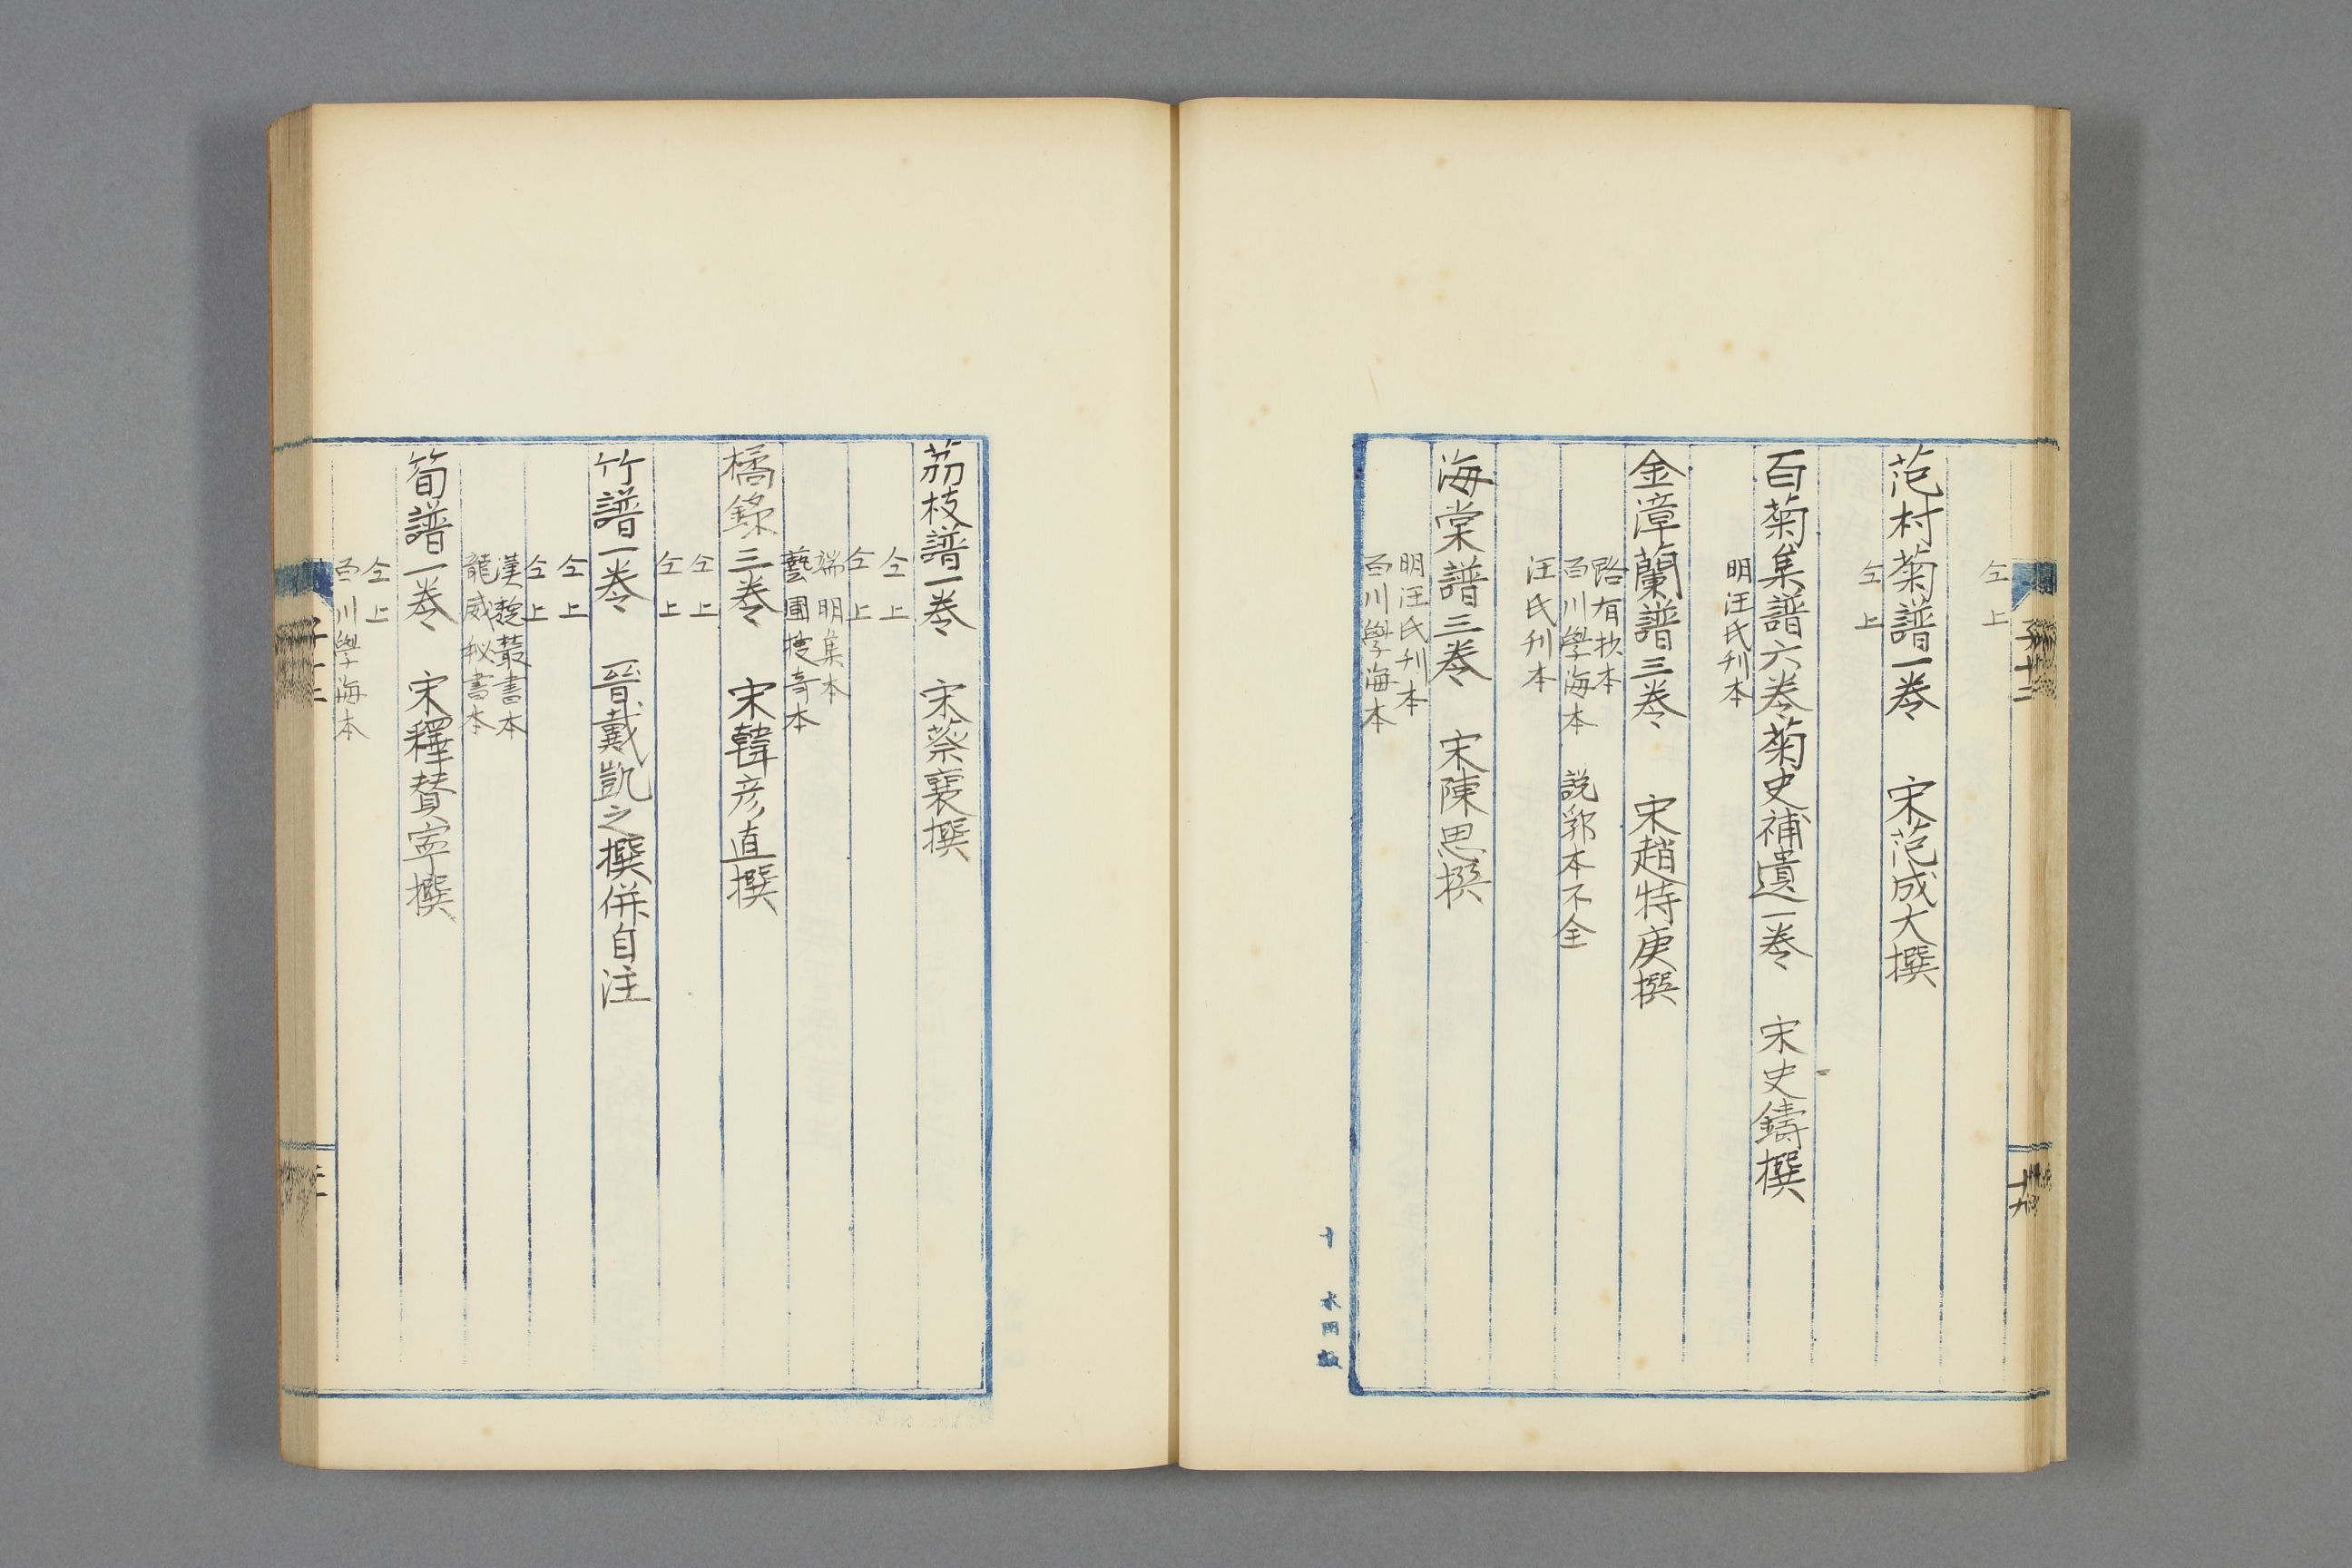 仝上
范村菊譜一卷　宋范成大撰
仝上
百菊集譜六卷菊史補遺一卷　宋史鑄撰
明汪氏刋本
金漳蘭譜三卷　宋趙特庚撰
路有抄本
百川學海本　說郛本不全
汪氏刋本
海棠譜三卷　宋陳思撰
明汪氏刋本
百川學海本
子十二
荔枝譜一卷　宋蔡襄撰
仝上
仝上
端明集本
藝圃搜奇本
橘錄三卷　宋韓彦直撰
仝上
仝上
竹譜一卷　晉戴凱之撰併自注
仝上
仝上
漢魏叢書本
龍威秘書本
筍譜一卷　宋釋贊寧撰
仝上
百川學海本